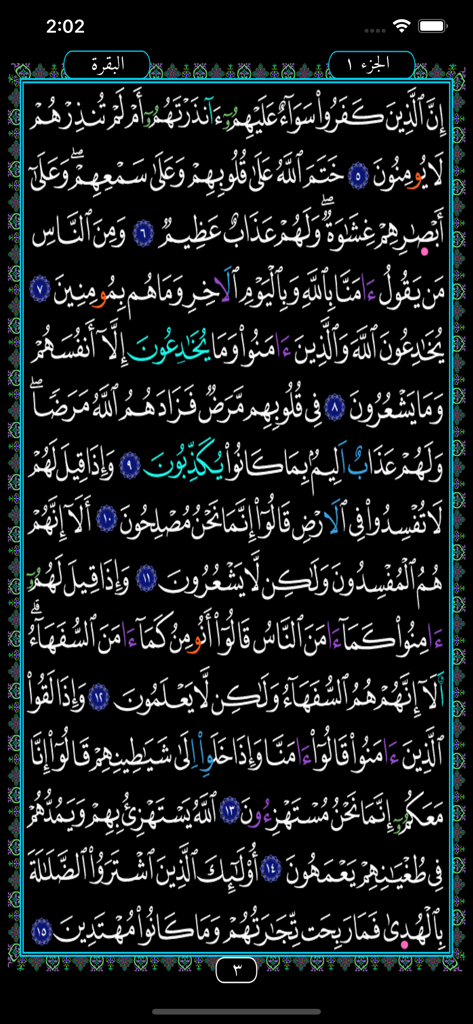 2:02
الجزء ١
البقرة
إِنَّ ٱلَّذِينَ كَفَرُوا۟ سَوَآءٌ عَلَيْهِمُۥٓ ءَآنذَرْتَهُمُۥٓ أَمْ لَمْ تُنذِرْهُمْ
لَا يُومِنُونَ ٥ خَتَمَ ٱللَّهُ عَلَىٰ قُلُوبِهِمْ وَعَلَىٰ سَمْعِهِمْۖ وَعَلَىٰٓ
أَبْصَٰرِهِمْ غِشَٰوَةٌۖ وَلَهُمْ عَذَابٌ عَظِيمٌ ٦ وَمِنَ ٱلنَّاسِ
مَن يَقُولُ ءَامَنَّا بِٱللَّهِ وَبِٱلْيَوْمِ ٱلَاخِرِ وَمَا هُم بِمُومِنِينَ ٧
يُخَٰدِعُونَ ٱللَّهَ وَٱلَّذِينَ ءَامَنُوا۟ وَمَا يُخَٰدِعُونَ إِلَّآ أَنفُسَهُمْ
وَمَا يَشْعُرُونَ ٨ فِى قُلُوبِهِم مَّرَضٌ فَزَادَهُمُ ٱللَّهُ مَرَضًاۖ
وَلَهُمْ عَذَابٌ اَلِيمٌۢ بِمَا كَانُوا۟ يُكَذِّبُونَ ٩ وَإِذَا قِيلَ لَهُمْ
لَا تُفْسِدُوا۟ فِى ٱلَارْضِ قَالُوٓا۟ إِنَّمَا نَحْنُ مُصْلِحُونَ ١٠ أَلَآ إِنَّهُمْ
هُمُ ٱلْمُفْسِدُونَ وَلَٰكِن لَّا يَشْعُرُونَ ١١ وَإِذَا قِيلَ لَهُمُۥٓ
ءَامِنُوا۟ كَمَآ ءَامَنَ ٱلنَّاسُ قَالُوٓا۟ أَنُومِنُ كَمَآ ءَامَنَ ٱلسُّفَهَآءُۗ
اَلَآ إِنَّهُمْ هُمُ ٱلسُّفَهَآءُ وَلَٰكِن لَّا يَعْلَمُونَ ١٢ وَإِذَا لَقُوا۟
ٱلَّذِينَ ءَامَنُوا۟ قَالُوٓا۟ ءَامَنَّا وَإِذَا خَلَوِا۟ اِلَىٰ شَيَٰطِينِهِمْ قَالُوٓا۟ إِنَّا
مَعَكُمُۥٓ إِنَّمَا نَحْنُ مُسْتَهْزِءُونَ ١٣ ٱللَّهُ يَسْتَهْزِئُ بِهِمْ وَيَمُدُّهُمْ
فِى طُغْيَٰنِهِمْ يَعْمَهُونَ ١٤ أُو۟لَٰٓئِكَ ٱلَّذِينَ ٱشْتَرَوُا۟ ٱلضَّلَٰلَةَ
بِٱلْهُدَىٰ فَمَا رَبِحَت تِّجَٰرَتُهُمْ وَمَا كَانُوا۟ مُهْتَدِينَ ١٥
٣